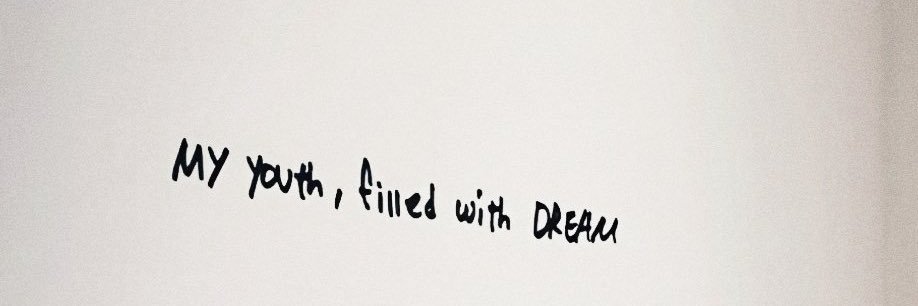 MY youth, filled with DREAM